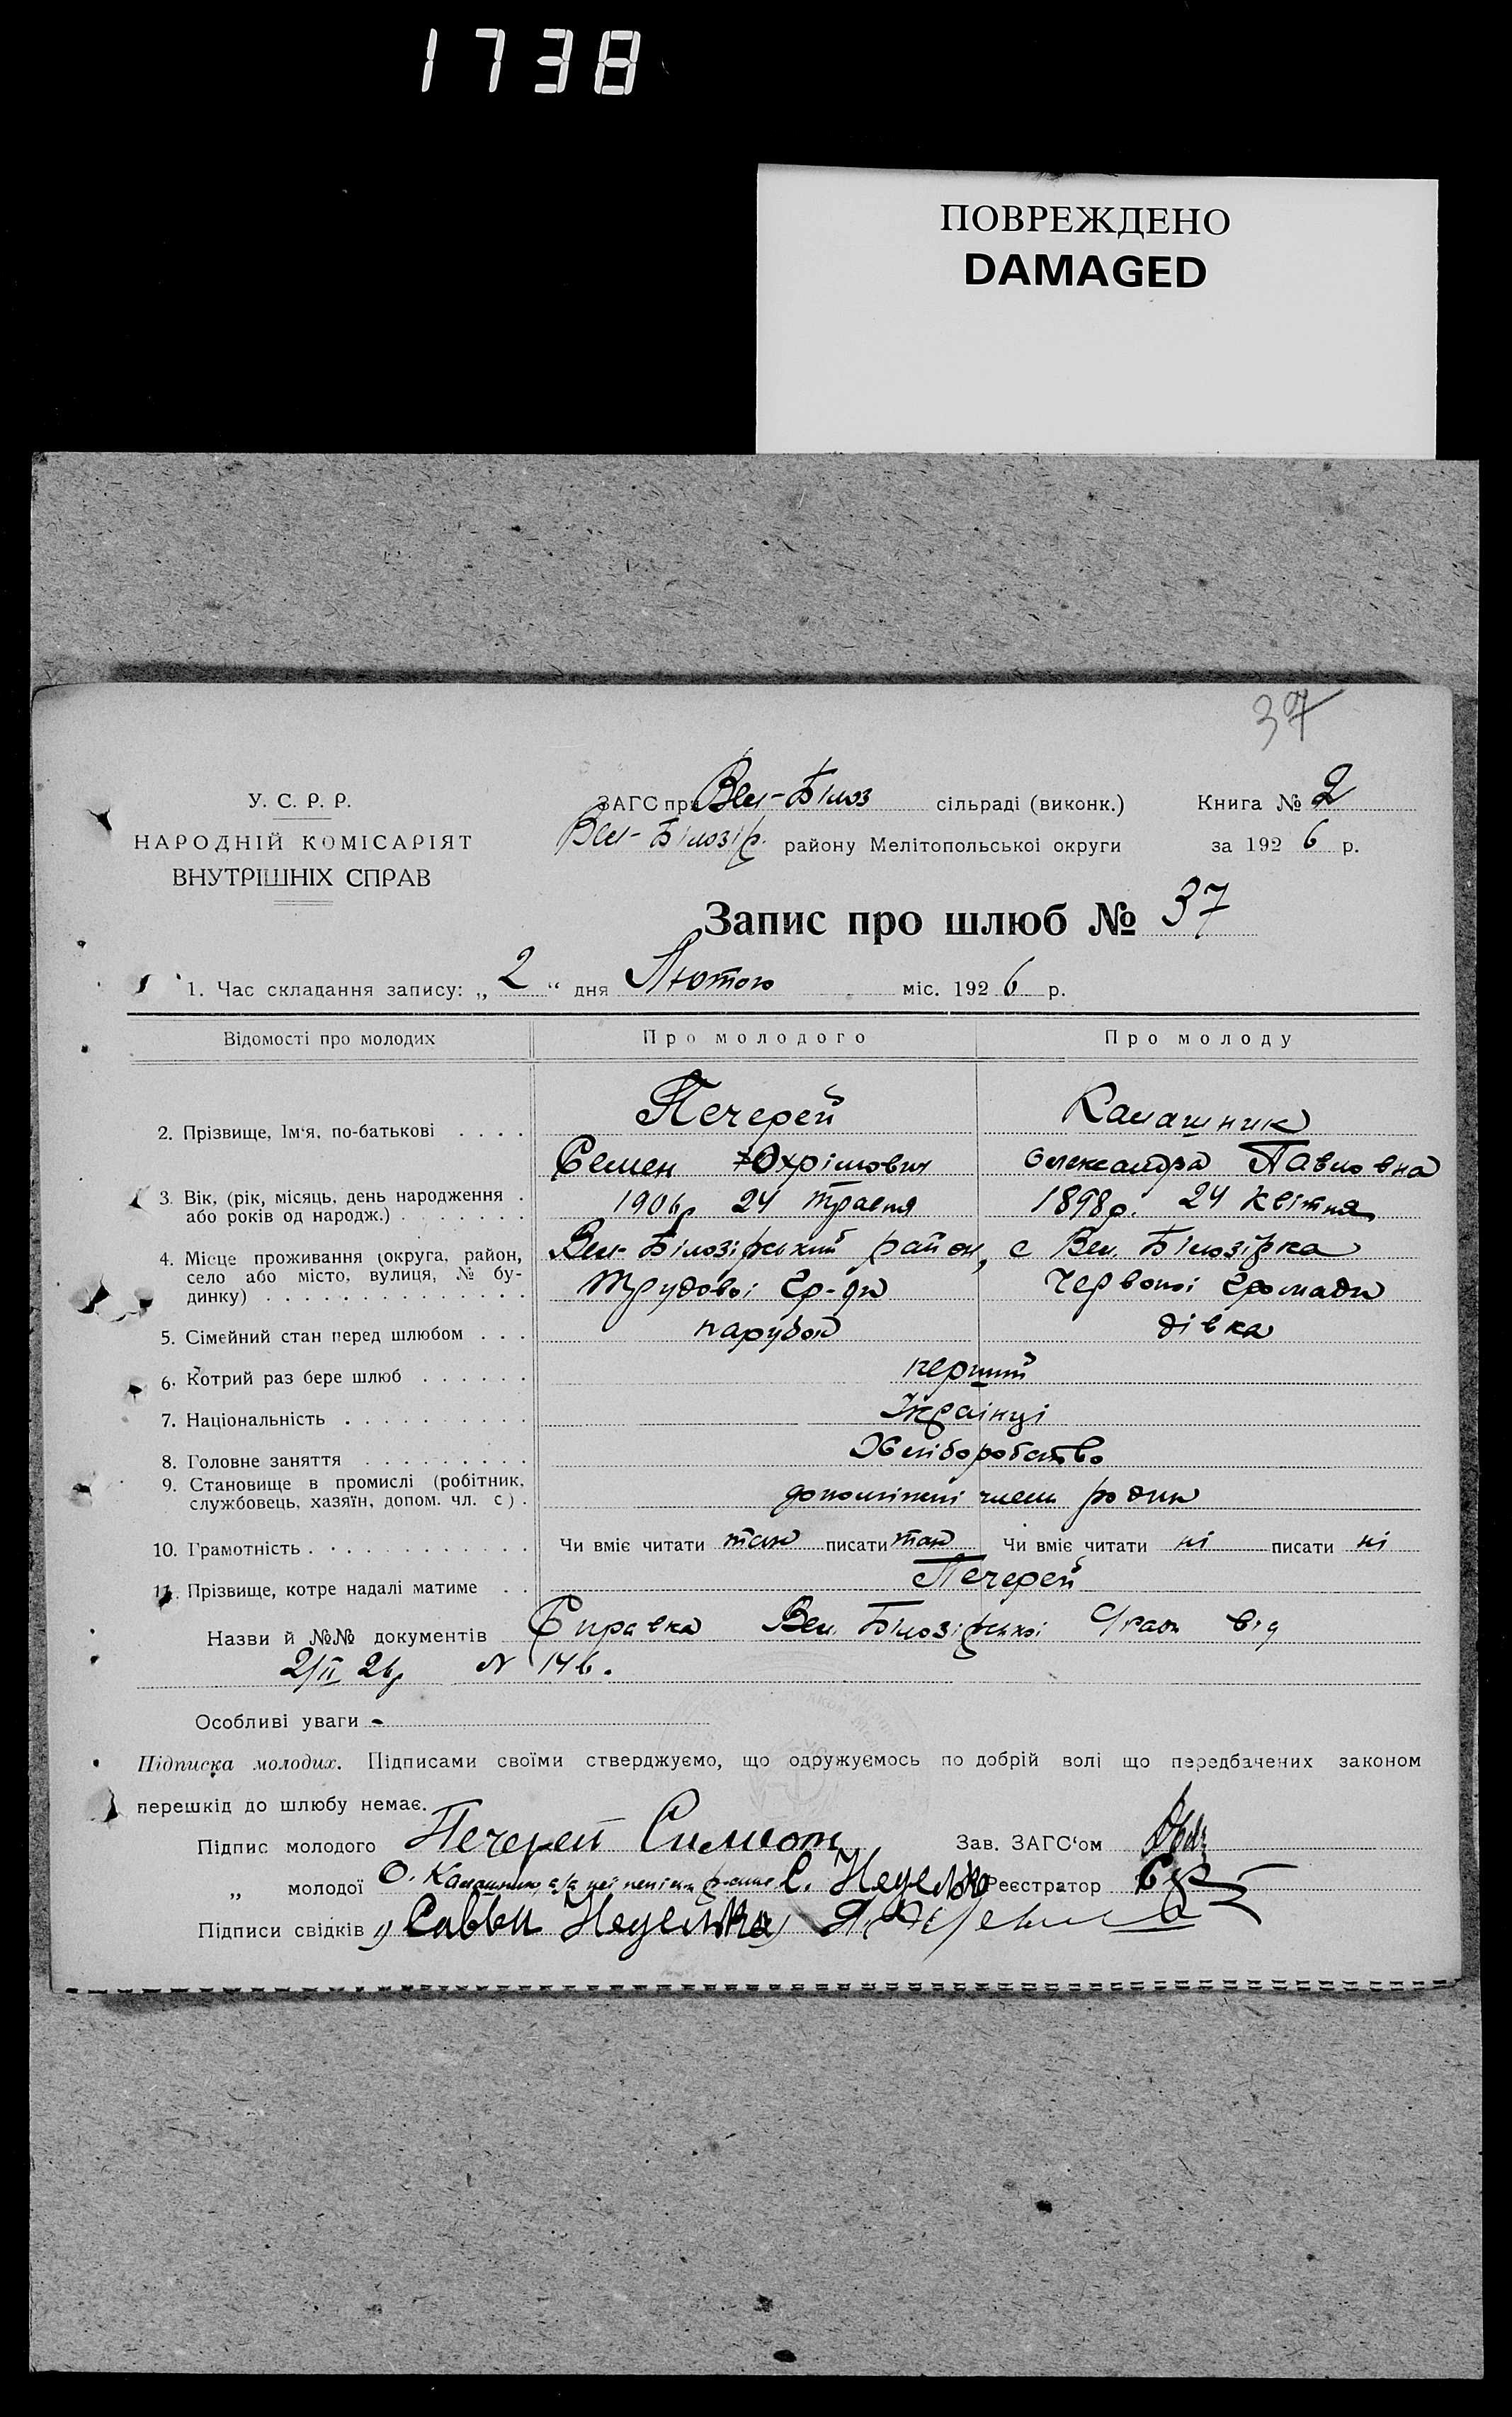 1738
ПОВРЕЖДЕНО
DAMAGED
37
У. С. Р. Р.
НАРОДНІЙ КОМІСАРІЯТ
ВНУТРІШНІХ СПРАВ
ЗАГС при Вел-Білоз сільраді (виконк.) Книга № 2
Вел-Білозір. району Мелітопольської округи за 1926 р.
Запис про шлюб № 37
1. Час складання запису: „2“ дня Лютого міс. 1926 р.
Відомості про молодих Про молодого Про молоду
2. Прізвище, Ім‘я, по-батькові . . . . Печерей Калашник
Семен Юхрімович Олександра Павловна
3. Вік, (рік, місяць, день народження . 1906р 24 травня 1898р. 24 квітня
або років од народж.) . . . . . . .
4. Місце проживання (округа, район, Вел-Білозірський район, с Вел. Білозірка
село або місто, вулиця, № бу-
динку) . . . . . . . . . . . . . . Трудової Гр-ди Червоної Громади
5. Сімейний стан перед шлюбом . . . парубок дівка
6. Котрий раз бере шлюб . . . . . . перший
7. Національність . . . . . . . . . . Українці
8. Головне заняття . . . . . . . . . Хліборобство
9. Становище в промислі (робітник,
службовець, хазяїн, допом. чл. с) . допомічні члени родин
10. Грамотність . . . . . . . . . . . . Чи вміє читати так писати так Чи вміє читати ні писати ні
11. Прізвище, котре надалі матиме . . Печерей
Назви й №№ документів Справка Вел. Білозірської С/ради від
2/II 26р N 146.
Особливі уваги -
Підписка молодих. Підписами своїми стверджуємо, що одружуємось по добрій волі що передбачених законом
перешкід до шлюбу немає.
Підпис молодого Печерей Симеон Зав. ЗАГС‘ом
„ молодої О. Калашник, а за неї С. Неделько Реєстратор
Підписи свідків 1) Савви Неделька